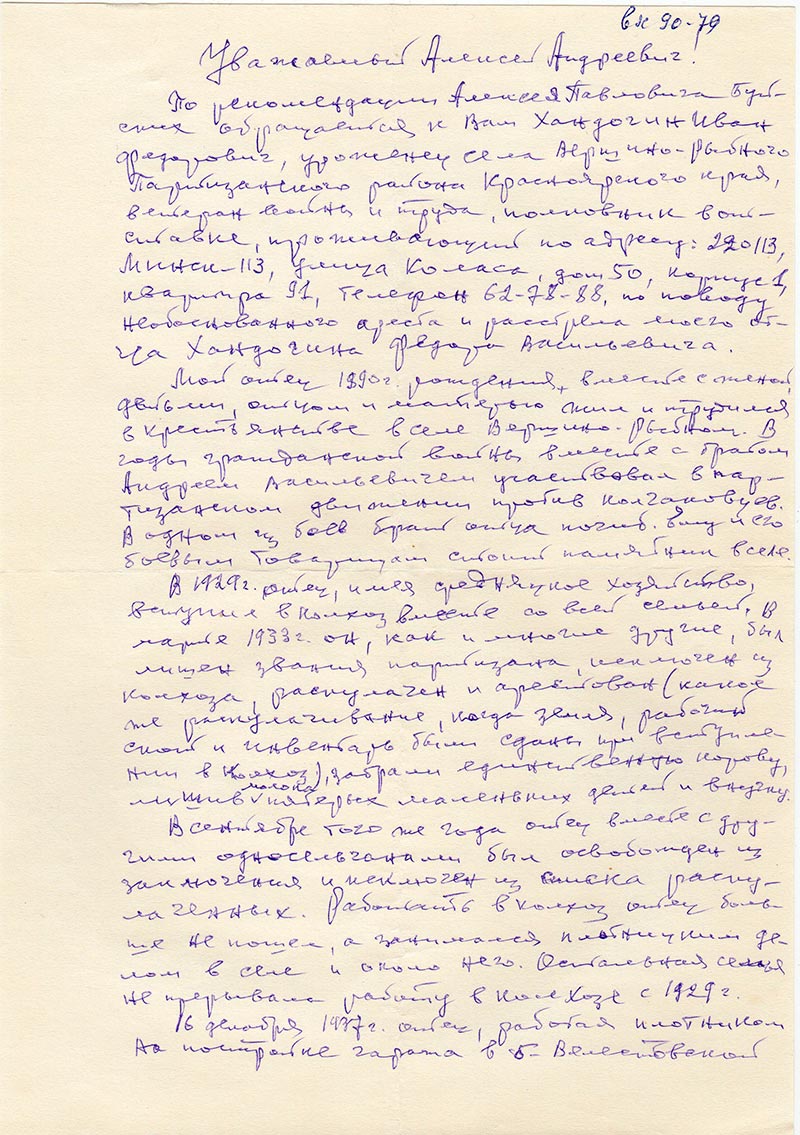 вх 90-79
Уважаемый Алексей Андреевич!
По рекомендации Алексея Павловича Буй-
ских обращается к Вам Хандогин Иван
Федорович, уроженец села Вершино-Рыбного
Партизанского района Красноярского края,
ветеран войны и труда, полковник в от-
ставке, проживающий по адресу: 220113,
Минск-113, улица Коласа, дом 50, корпус 1,
квартира 91, телефон 62-78-88, по поводу
необоснованного ареста и расстрела моего от-
ца Хандогина Федора Васильевича.
Мой отец 1890 г. рождения, вместе с женой,
детьми, отцом и матерью жил и трудился
в крестьянстве в селе Вершино-Рыбном. В
годы гражданской войны вместе с братом
Андреем Васильевичем участвовал в пар-
тизанском движении против колчаковцев.
В одном из боев брат отца погиб. Ему и его
боевым товарищам стоит памятник в селе.
В 1929 г. отец, имея середняцкое хозяйство,
вступил в колхоз вместе со всей семьей. В
марте 1933 г. он, как и многие другие, был
лишен звания партизана, исключен из
колхоза, раскулачен и арестован (какое
же раскулачивание, когда земля, рабочий
скот и инвентарь были сданы при вступле-
нии в колхоз), забрали единственную корову,
лишив молока пятерых маленьких детей и внучку.
В сентябре того же года отец вместе с дру-
гими односельчанами был освобожден из
заключения и исключен из списка раску-
лаченных. Работать в колхоз отец боль-
ше не пошел, а занимался плотницким де-
лом в селе и около него. Остальная семья
не прерывала работу в колхозе с 1929 г.
16 декабря 1937 г. отец, работая плотником
на постройке гаража в б-